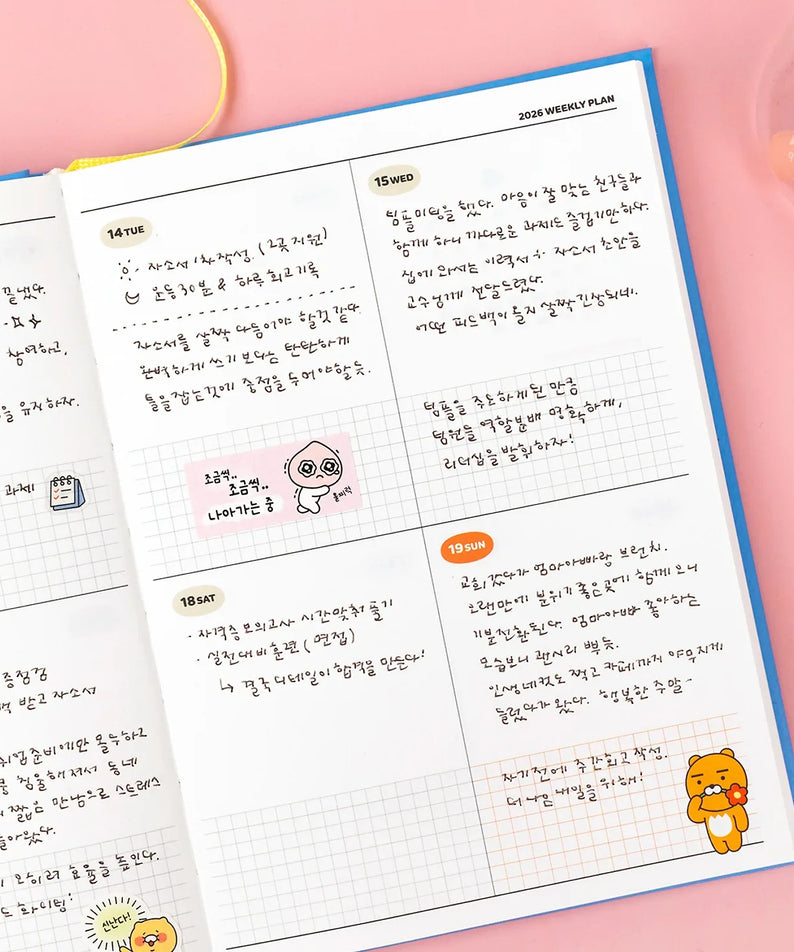 2026 WEEKLY PLAN
끝냈다.
참여하고,
을 유지하자.
과제
중점검
받고 자소서
취업준비에만 몰두하고
침울해져서 동네
짧은 만남으로 스트레스
돌아왔다.
오히려 효율을 높인다.
화이팅!
신난다!
14 TUE
자소서 1차작성. (2곳 지원)
운동 30분 & 하루 회고 기록
자소서를 살짝 다듬어야 할것 같다.
완벽하게 쓰기 보다는 탄탄하게
틀을 잡는것에 중점을 두어야할듯.
조금씩..
조금씩..
나아가는 중
15 WED
팀플미팅을 했다. 마음이 잘 맞는 친구들과
함께 하니 까다로운 과제도 즐겁기만 하다.
집에 와서는 이력서 + 자소서 초안을
교수님께 전달드렸다.
어떤 피드백이 올지 살짝 긴장되네.
팀플을 주도하게 된 만큼
팀원들 역할분배 명확하게,
리더십을 발휘하자!
18 SAT
· 자격증 모의고사 시간 맞춰 풀기
· 실전 대비 훈련 (면접)
↳ 결국 디테일이 합격을 만든다!
19 SUN
교회 갔다가 엄마아빠랑 브런치.
오랜만에 분위기 좋은 곳에 함께 오니
기분전환된다. 엄마아빠 좋아하는
모습보니 괜시리 뿌듯.
인생네컷도 찍고 카페까지 야무지게
들렀다가 왔다. 행복한 주말~
자기전에 주간회고 작성.
더 나은 내일을 위해!